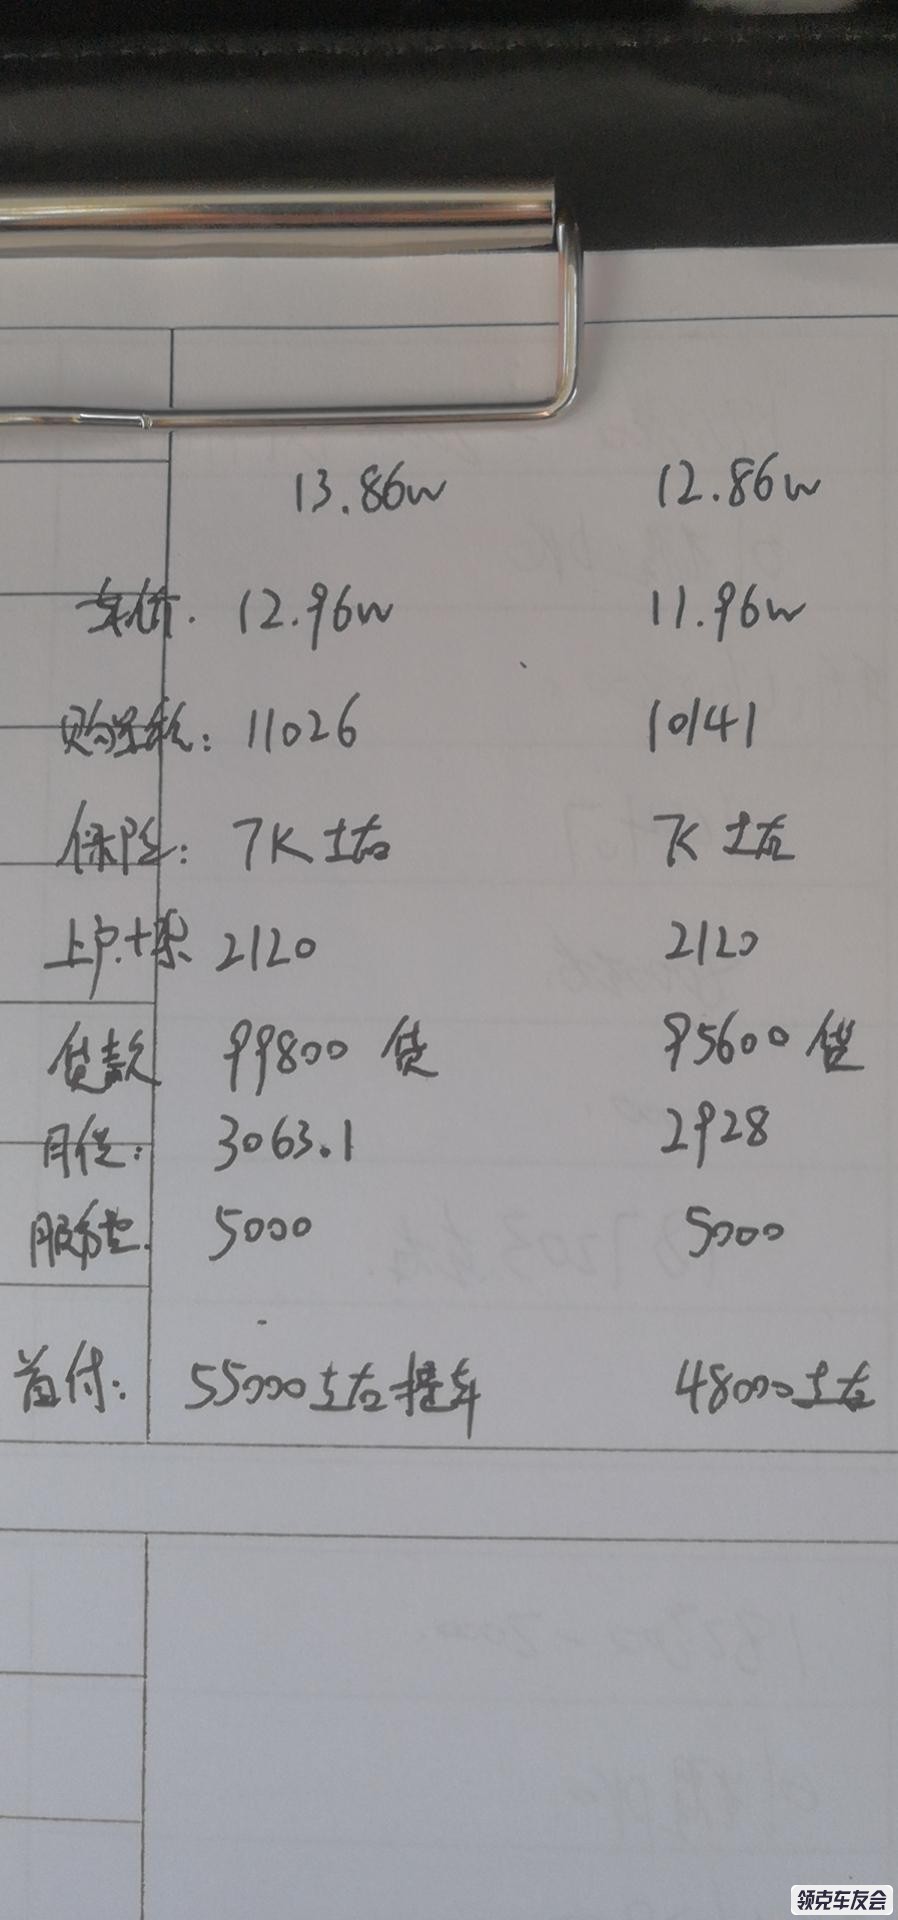 13.86w 12.86w
车价. 12.96w 11.96w
购置税: 11026 10141
保险: 7K左右 7K左右
上户.+ 2120 2120
贷款 99800 贷 95600 贷
月供: 3063.1 2928
服务 5000 5000
首付: 55000左右提车 48000左右
领克车友会